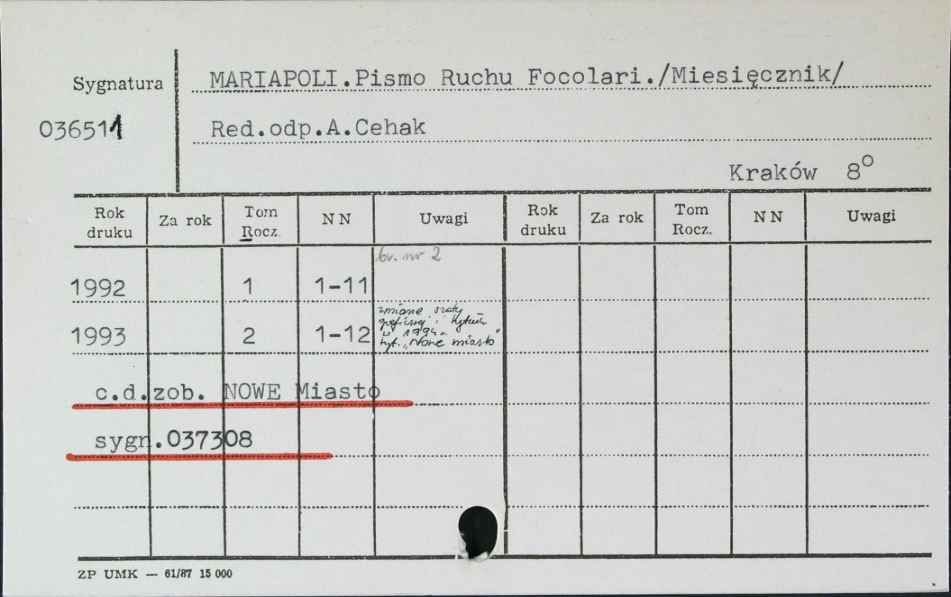 Sygnatura
MARIAPOLI.Pismo Ruchu Focolari./Miesięcznik/
036511
Red.odp.A.Cehak
Kraków 8°
Rok druku Za rok Tom Rocz. NN Uwagi Rok druku Za rok Tom Rocz. NN Uwagi
br. nr 2
1992 1 1-11
zmiana szaty
graficznej i tytułu
1993 2 1-12 w 1994.
tyt. "Nowe miasto"
c.d.zob. NOWE Miasto
sygn.037308
ZP UMK — 61/87 15 000